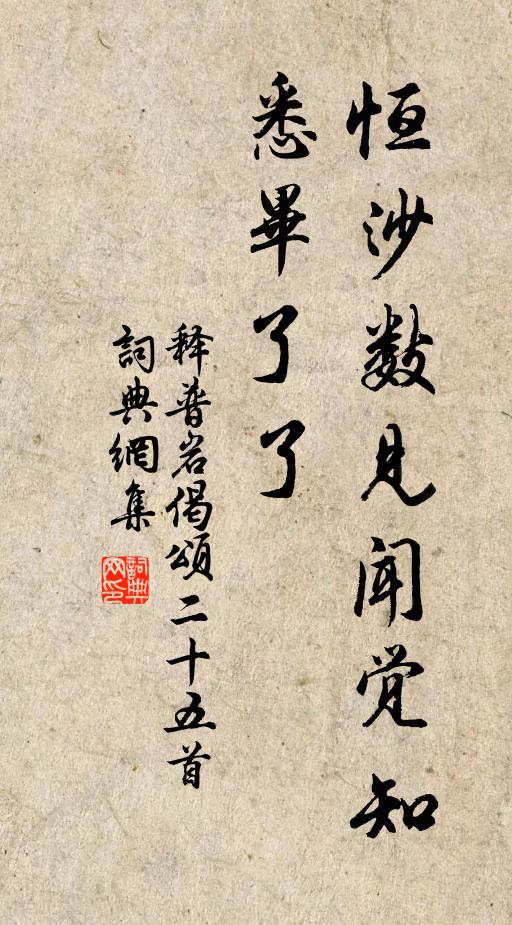 恒沙数见闻觉知
悉畢了了
释普岩偈頌二十五首
詞典網集
詞典網印